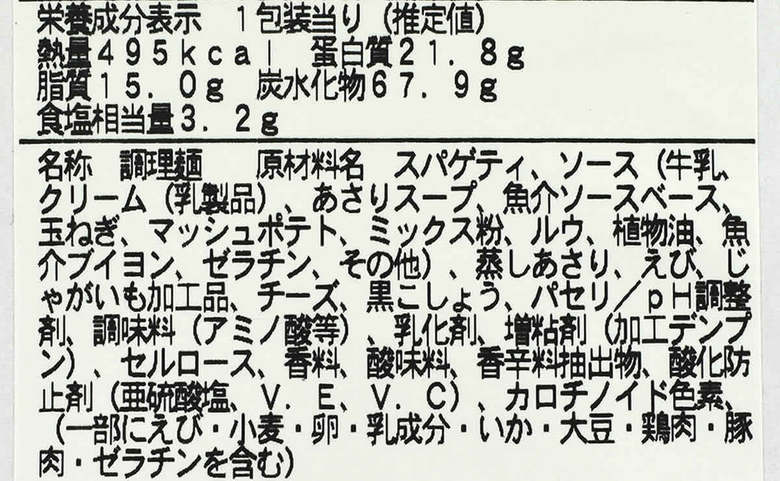 栄養成分表示　1包装当り（推定値）
熱量495kcal　蛋白質21.8g
脂質15.0g　炭水化物67.9g
食塩相当量3.2g
名称　調理麺　　原材料名　スパゲティ、ソース（牛乳、
クリーム（乳製品）、あさりスープ、魚介ソースベース、
玉ねぎ、マッシュポテト、ミックス粉、ルウ、植物油、魚
介ブイヨン、ゼラチン、その他）、蒸しあさり、えび、じ
ゃがいも加工品、チーズ、黒こしょう、パセリ／pH調整
剤、調味料（アミノ酸等）、乳化剤、増粘剤（加工デンプ
ン）、セルロース、香料、酸味料、香辛料抽出物、酸化防
止剤（亜硫酸塩、V．E、V．C）、カロチノイド色素、
（一部にえび・小麦・卵・乳成分・いか・大豆・鶏肉・豚
肉・ゼラチンを含む）